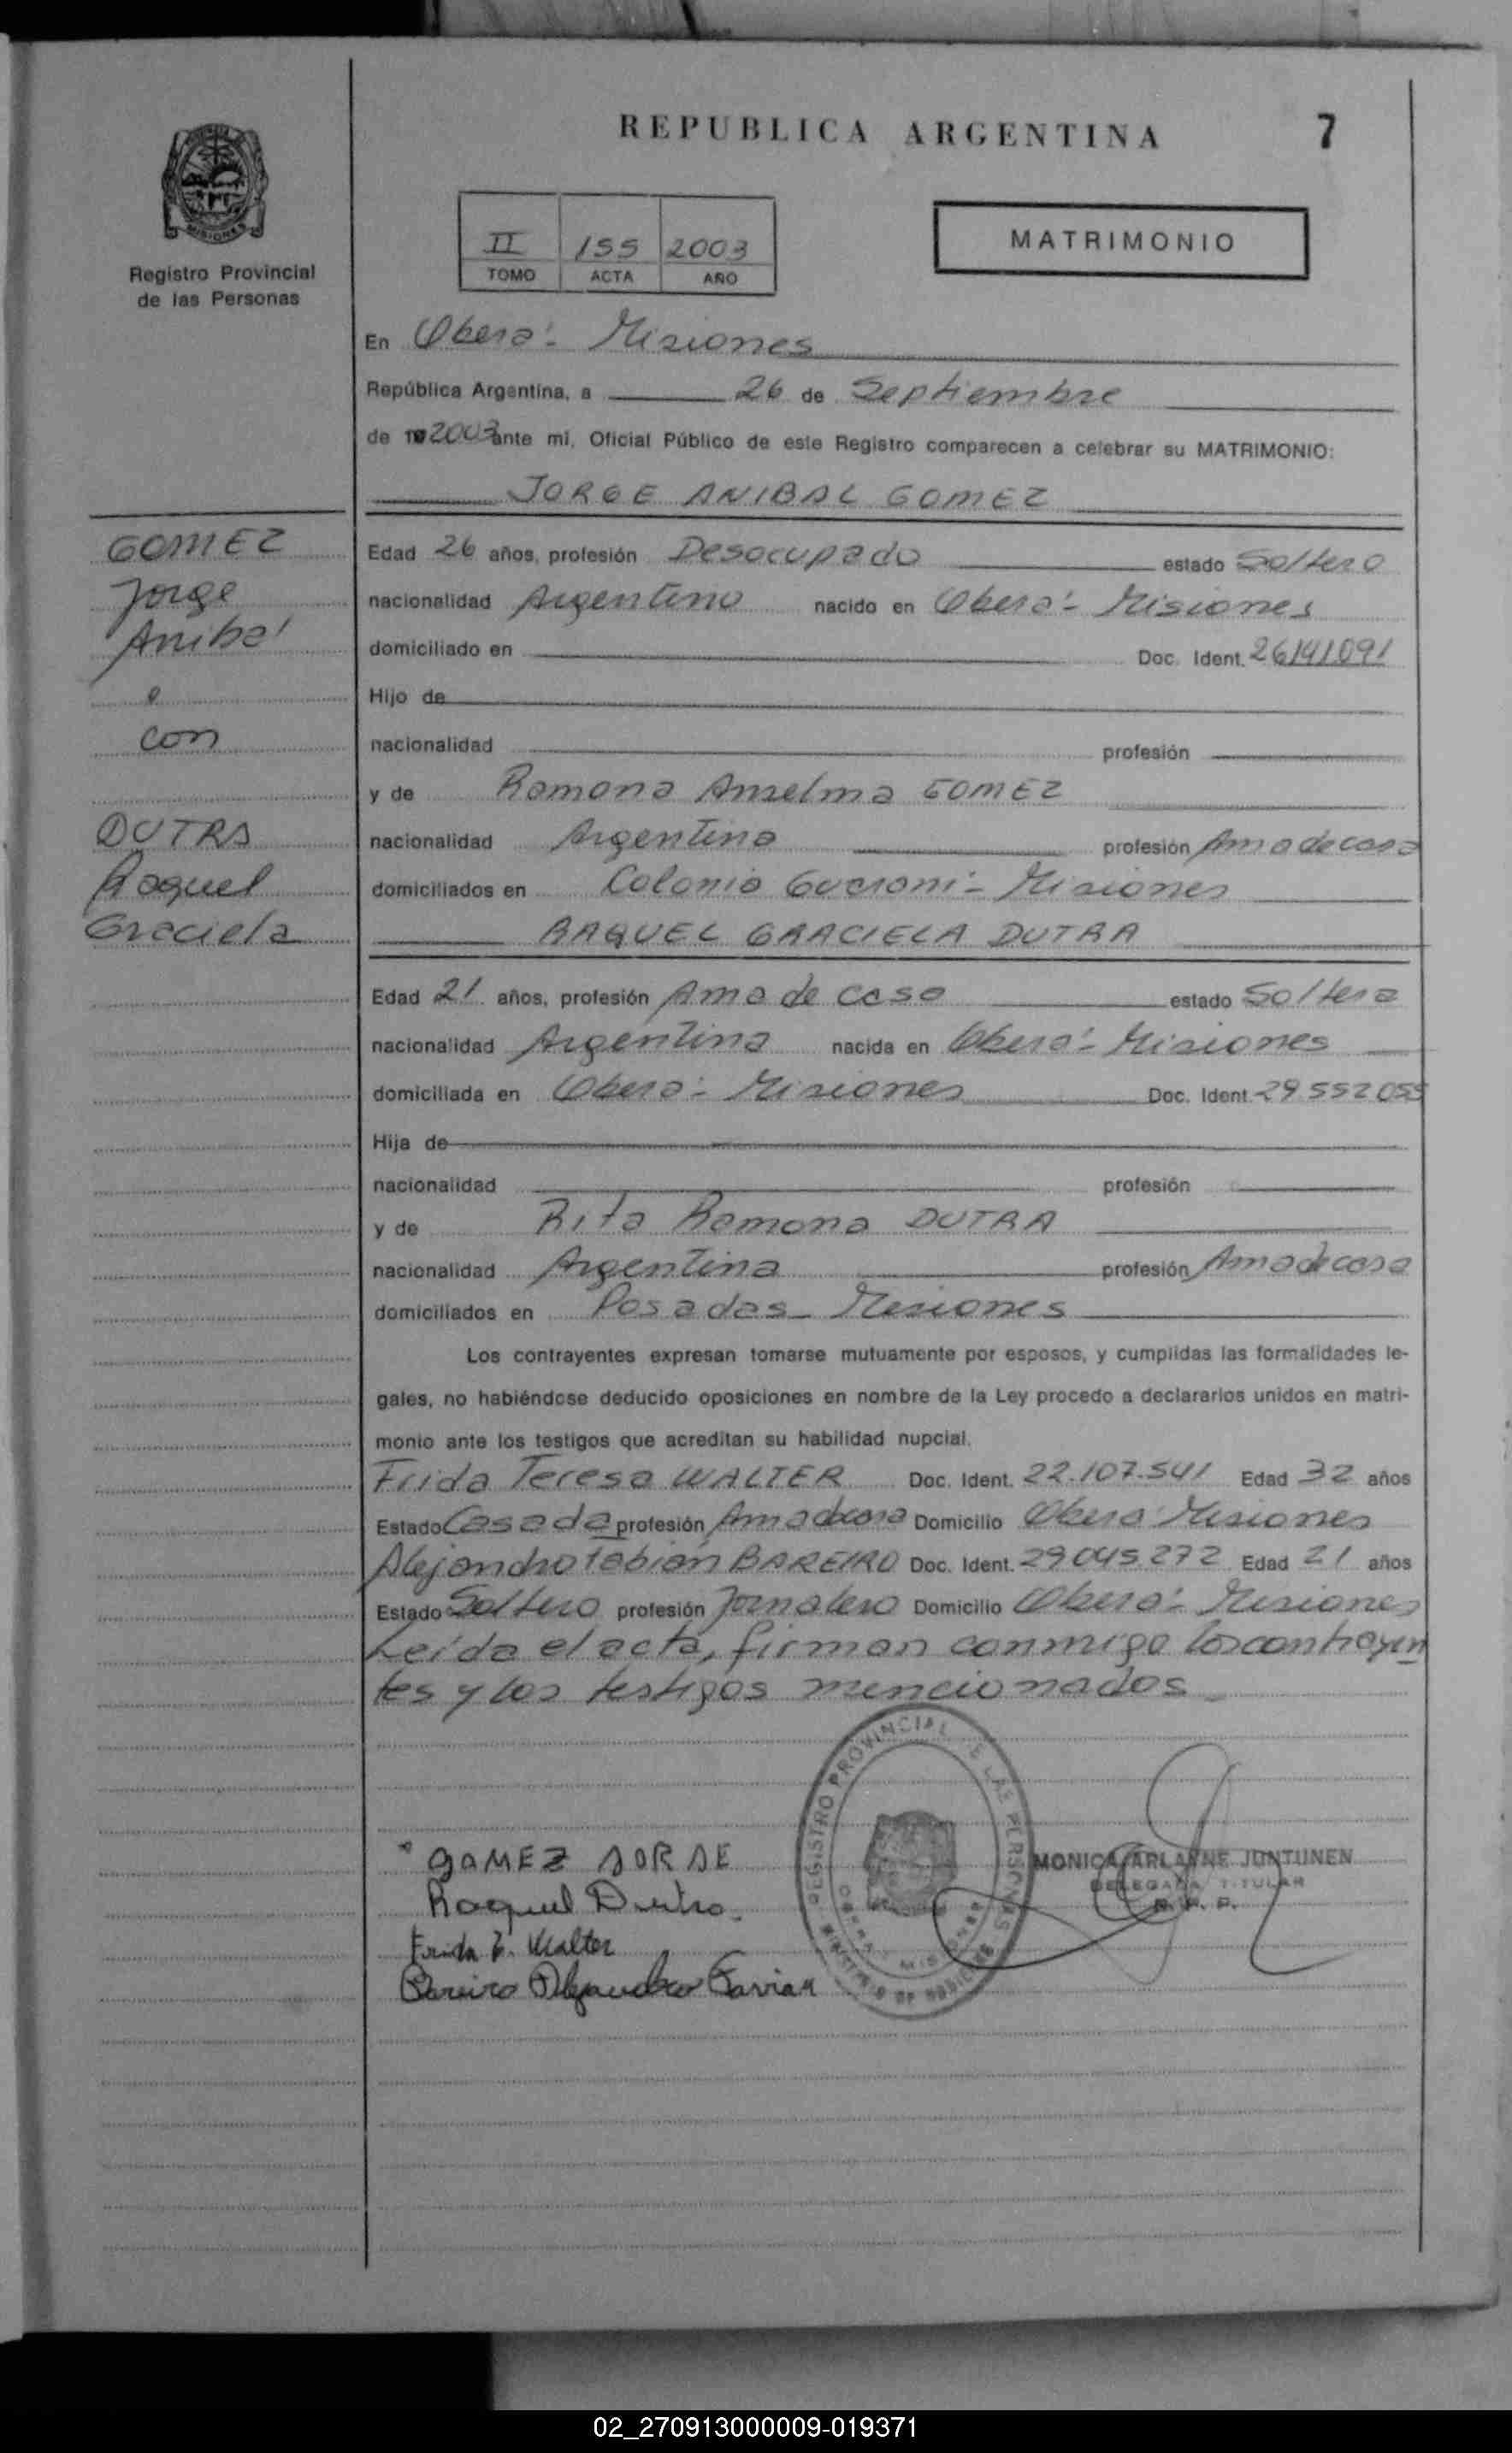 REPUBLICA ARGENTINA
7
MISIONES
Registro Provincial
de las Personas
II 155 2003
TOMO ACTA AÑO
MATRIMONIO
En Oberá - Misiones
República Argentina, a 26 de Septiembre
de 19 2003 ante mi, Oficial Público de este Registro comparecen a celebrar su MATRIMONIO:
JORGE ANIBAL GOMEZ
GOMEZ
Jorge
Anibal
con
DUTRA
Raquel
Graciela
Edad 26 años, profesión Desocupado estado Soltero
nacionalidad Argentino nacido en Oberá - Misiones
domiciliado en Doc. Ident. 26141091
Hijo de
nacionalidad profesión
y de Ramona Anselma GOMEZ
nacionalidad Argentina profesión Ama de casa
domiciliados en Colonia Guaraní - Misiones
RAQUEL GRACIELA DUTRA
Edad 21 años, profesión Ama de casa estado Soltera
nacionalidad Argentina nacida en Oberá - Misiones
domiciliada en Oberá - Misiones Doc. Ident. 29.552.055
Hija de
nacionalidad profesión
y de Rita Ramona DUTRA
nacionalidad Argentina profesión Ama de casa
domiciliados en Posadas - Misiones
Los contrayentes expresan tomarse mutuamente por esposos, y cumplidas las formalidades le-
gales, no habiéndose deducido oposiciones en nombre de la Ley procedo a declararlos unidos en matri-
monio ante los testigos que acreditan su habilidad nupcial.
Frida Teresa WALTER Doc. Ident. 22.107.541 Edad 32 años
Estado Casada profesión Ama de casa Domicilio Oberá Misiones
Alejandro Fabián BAREIRO Doc. Ident. 29.045.272 Edad 21 años
Estado Soltero profesión Jornalero Domicilio Oberá - Misiones
Leída el acta, firman conmigo los contrayen
tes y los testigos mencionados
REGISTRO PROVINCIAL DE LAS PERSONAS
OBERA MISIONES
GOMEZ JORGE
Raquel Dutra.
Frida T. Walter
Bareiro Alejandro Favian
MONICA ARLANNE JUNTUNEN
DELEGADA TITULAR
R. P. P.
02_270913000009-019371